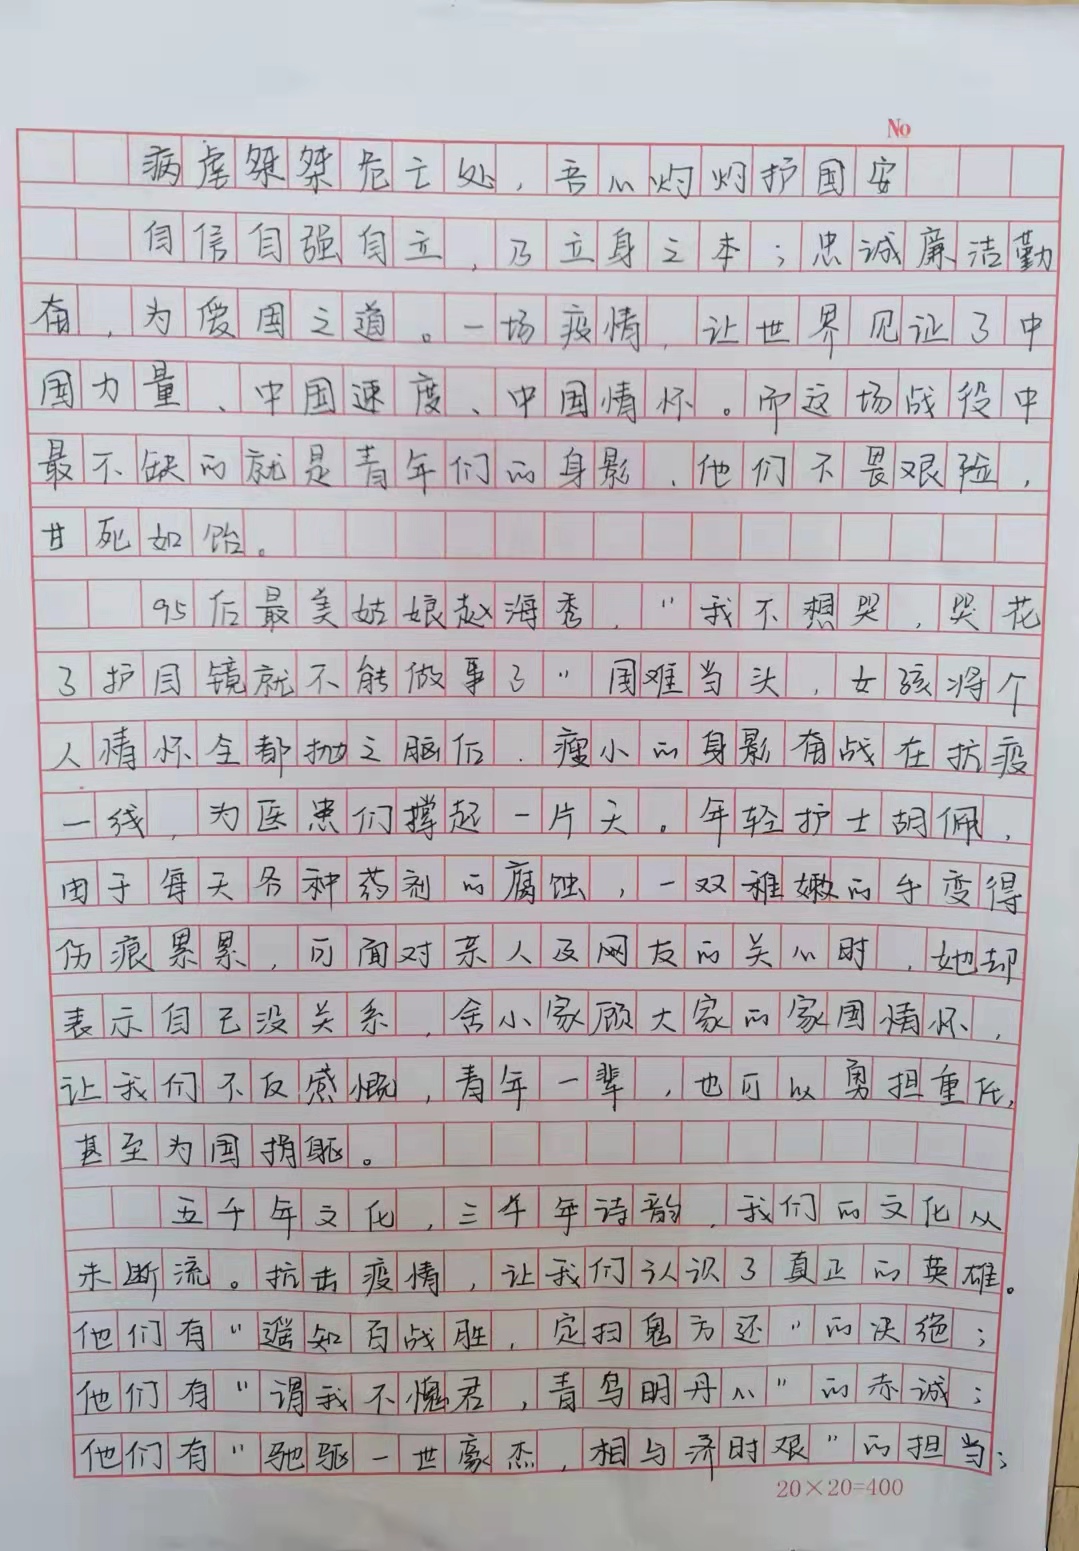 No
病虐桀桀危亡处，吾心灼灼护国安
自信自强自立，乃立身之本；忠诚廉洁勤
奋，为爱国之道。一场疫情，让世界见证了中
国力量、中国速度、中国情怀。而这场战役中
最不缺的就是青年们的身影，他们不畏艰险，
甘死如饴。
95后最美姑娘赵海秀，“我不想哭，哭花
了护目镜就不能做事了”国难当头，女孩将个
人情怀全部抛之脑后．瘦小的身影奋战在抗疫
一线，为医患们撑起一片天。年轻护士胡佩，
由于每天各种药剂的腐蚀，一双稚嫩的手变得
伤痕累累，可面对亲人及网友的关心时，她却
表示自己没关系，舍小家顾大家的家国情怀，
让我们不反感慨，青年一辈，也可以勇担重任，
甚至为国捐躯。
五千年文化，三千年诗韵，我们的文化从
未断流。抗击疫情，让我们认识了真正的英雄。
他们有“遥知百战胜，定扫鬼方还”的决绝；
他们有“谓我不愧君，青鸟明丹心”的赤诚；
他们有“驰驱一世豪杰，相与济时艰”的担当；
20×20=400